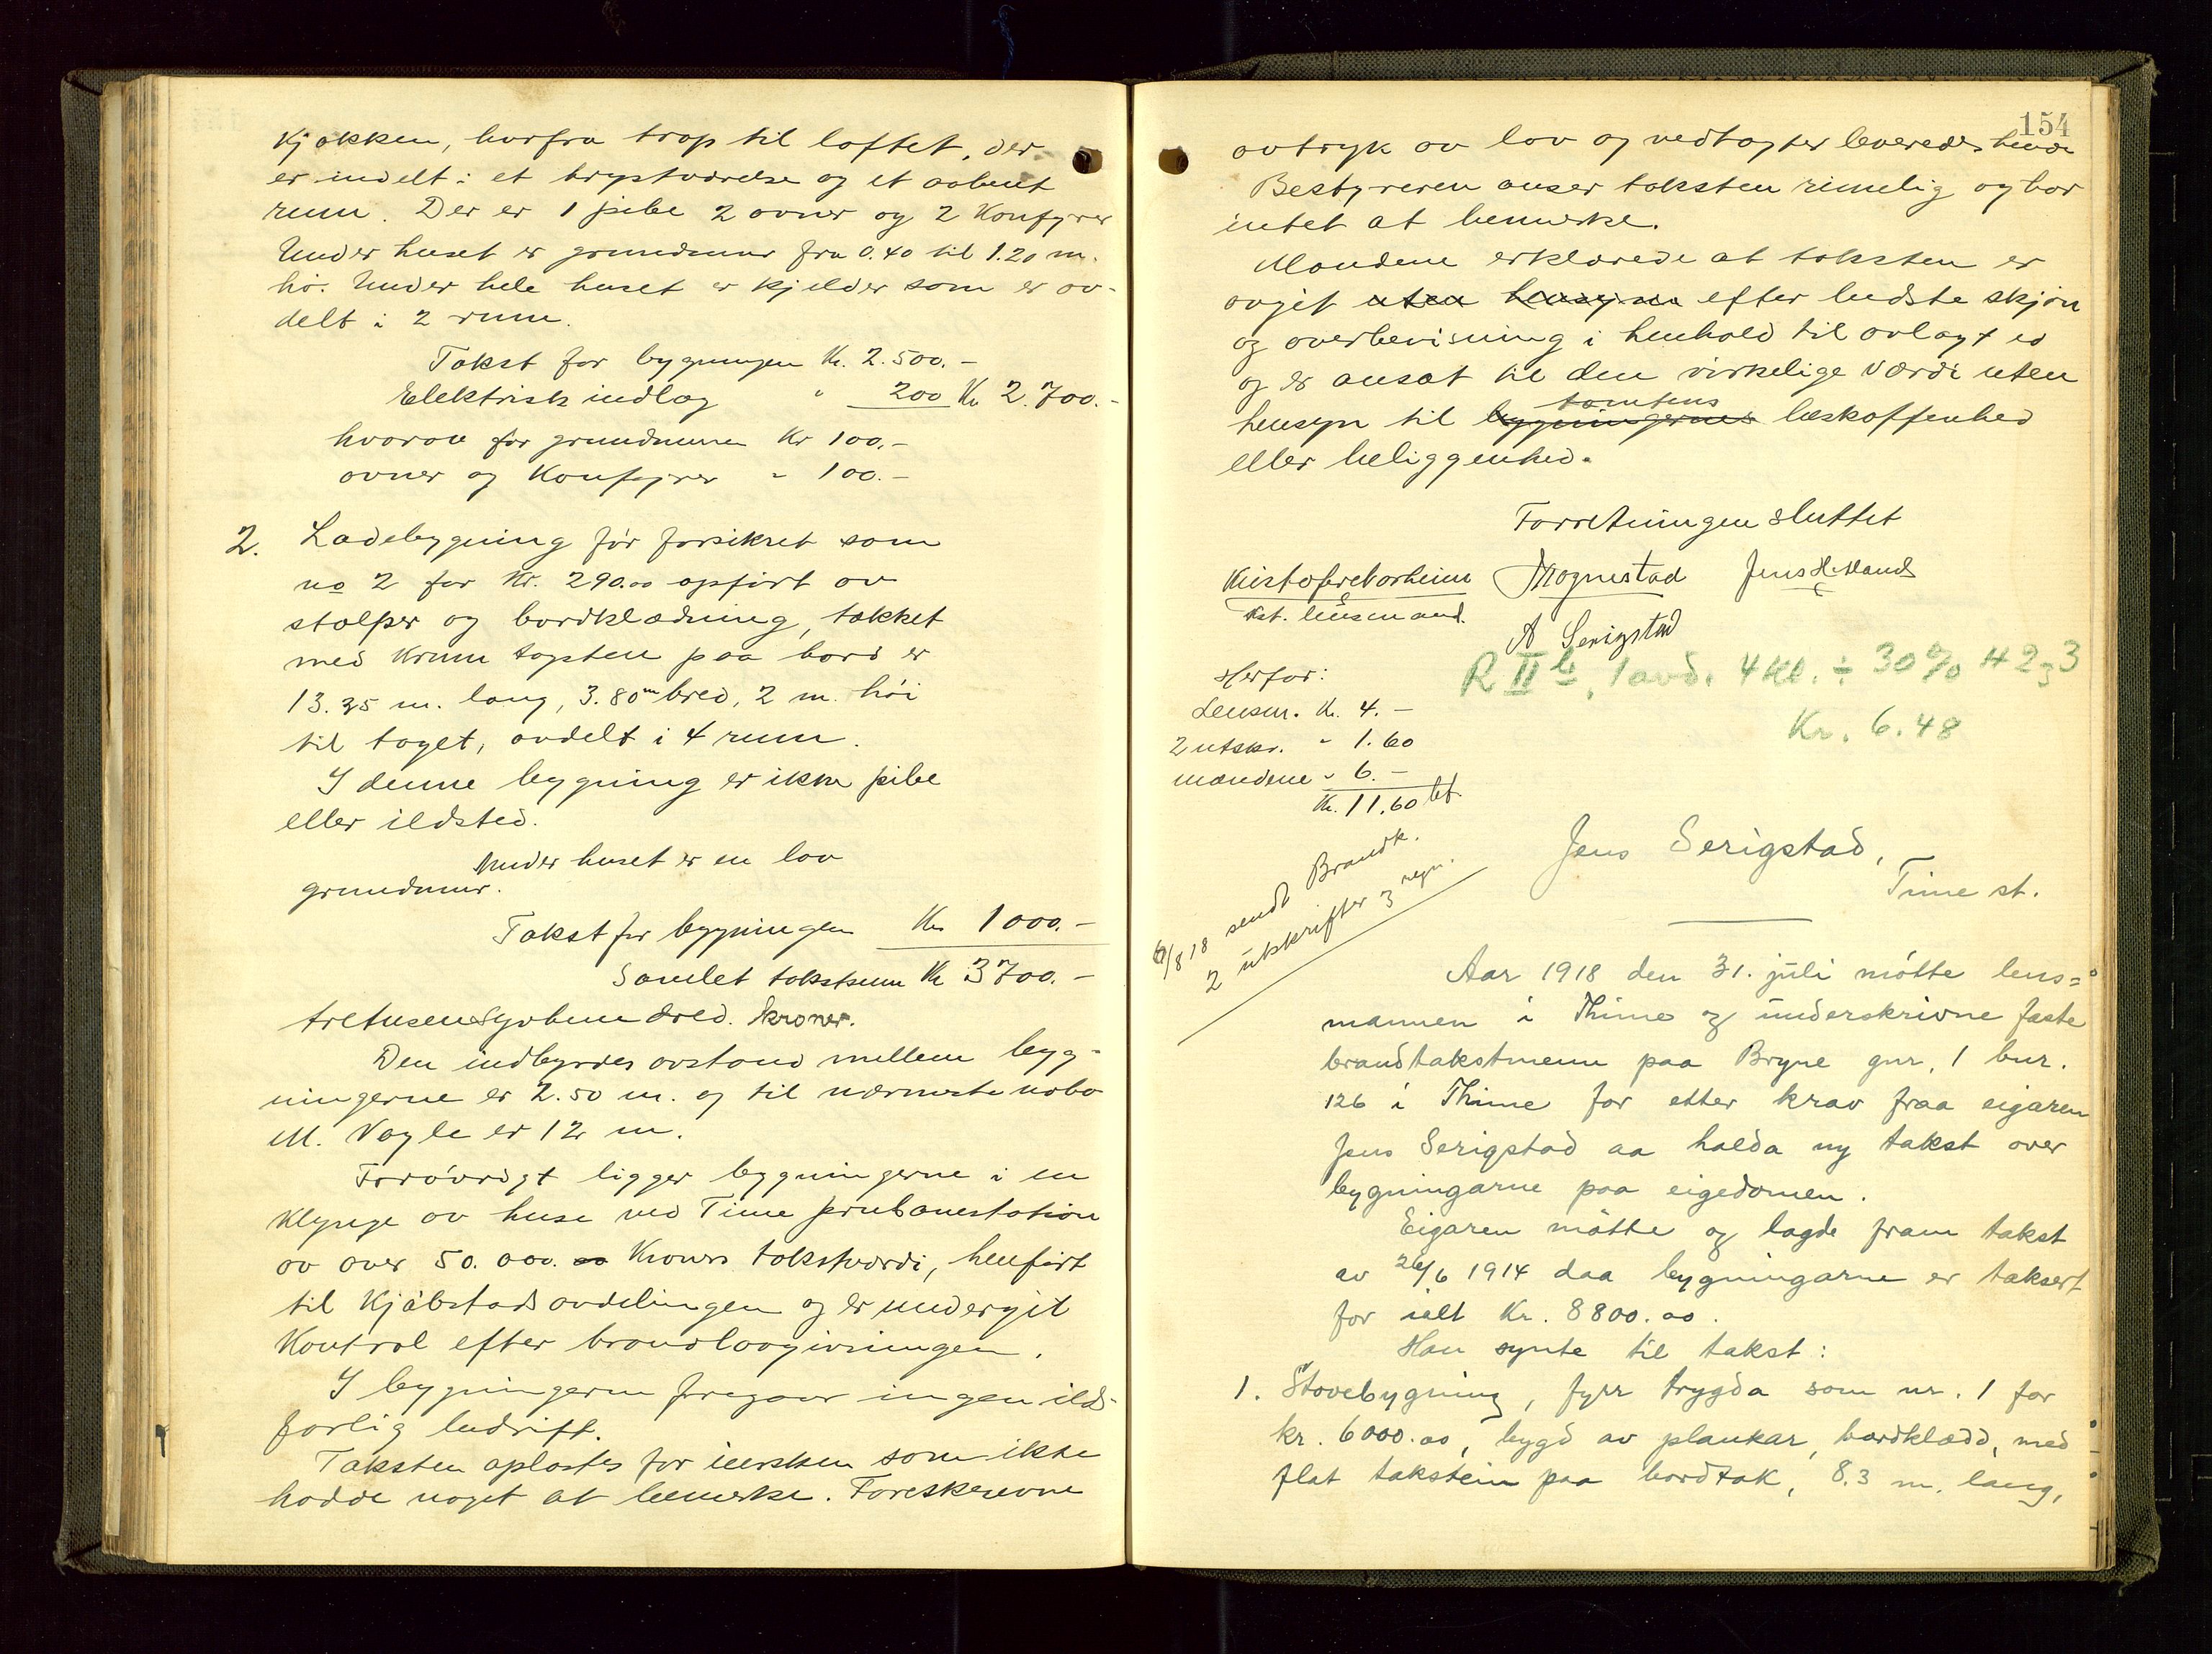 kjøkken, hvorfra trap til loftet, der
er indelt i et kvistværelse og et aabent
rum. Der er 1 pibe 2 ovner og 2 Komfyrer
Under huset er grundmur fra 0.40 til 1.20 m.
høi. Under hele huset er kjelder som er av-
delt i 2 rum.
Takst for bygningen Kr. 2.500.-
Elektrisk indlæg " 200 Kr 2.700.-
hvorav for grundmuren Kr 100.-
ovner og Komfyrer " 100.-
2. Ladebygning før forsikret som
no 2 for Kr. 290.00 opført av
stolper og bordklædning, tækket
med krum tagsten paa bord er
13.35 m. lang, 3.80 m bred, 2 m. høi
til taget, avdelt i 4 rum.
I denne bygning er ikke pibe
eller ildsted.
Under huset er en lav
grundmur.
Takst for bygningen Kr 1000.-
Samlet takstsum Kr 3700.-
tretusensyvhundred. kroner.
Den indbyrdes avstand mellem byg-
ningerne er 2.50 m. og til nærmeste nabo
M. Vagle er 12 m.
Forøvrigt ligger bygningerne i en
klynge av huse ved Time jernbanestation
av over 50.000. Kroners takstværdi, henført
til kjøbstadsavdelingen og er undergit
Kontrol efter brandlovgivningen.
I bygningerne foregaar ingen ilds-
farlig bedrift.
Taksten oplæstes for eiersken som ikke
hadde noget at bemerke. Foreskrevne
154
avtryk av lov og vedtægter leveredes hende
Bestyreren anser taksten rimelig og har
intet at bemerke.
Mændene erklærede at taksten er
avgit uten hensyn efter bedste skjøn
og overbevisning i henhold til avlagt ed
og er ansat til den virkelige værdi uten
tomtens
hensyn til bygningernes beskaffenhed
eller beliggenhed.
Forretningen sluttet
Kristofer Norheim Mognestad Jens
kst. lensmand.
A Serigstad
Herfor:
R II b, 1 avd. 4 kl. ÷ 30% H 2 3
Lensm. Kr. 4.-
Kr. 6.48
2 utskr. " 1.60
mændene " 6.-
Kr. 11,60 bet.
6/8 18 sendt Brandk.
2 utskrifter 3 regn.
Jens Serigstad,
Time st.
Aar 1918 den 31. juli møtte lens=
mannen i Thime og underskrivne faste
brandtakstmenn paa Bryne gnr. 1 bnr.
126 i Thime for etter krav fraa eigaren
Jens Serigstad aa halda ny takst over
bygningarne paa eigedomen.
Eigaren møtte og lagde fram takst
av 26/6 1914 daa bygningarne er taksert
for ialt Kr. 8800.00.
Han synte til takst:
1. Stovebygning, fyrr trygda som nr. 1 for
kr. 6000.00, bygd av plankar, bordklædd, med
flat takstein paa bordtak, 8.3 m. lang,